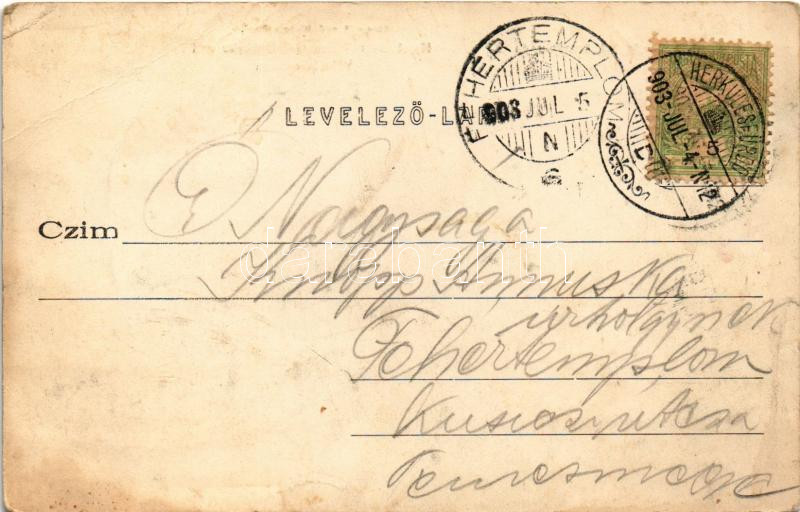 FEHÉRTEMPLOM
903 JUL. 5
N
6
HERKULESFÜRDŐ
903 JUL. 4. N12
LEVELEZŐ-LAP
Czim
Ő Nagysága
Knopp Annuska
urhölgynek
Fehértemplom
utcza
Temesmegye
darabanth